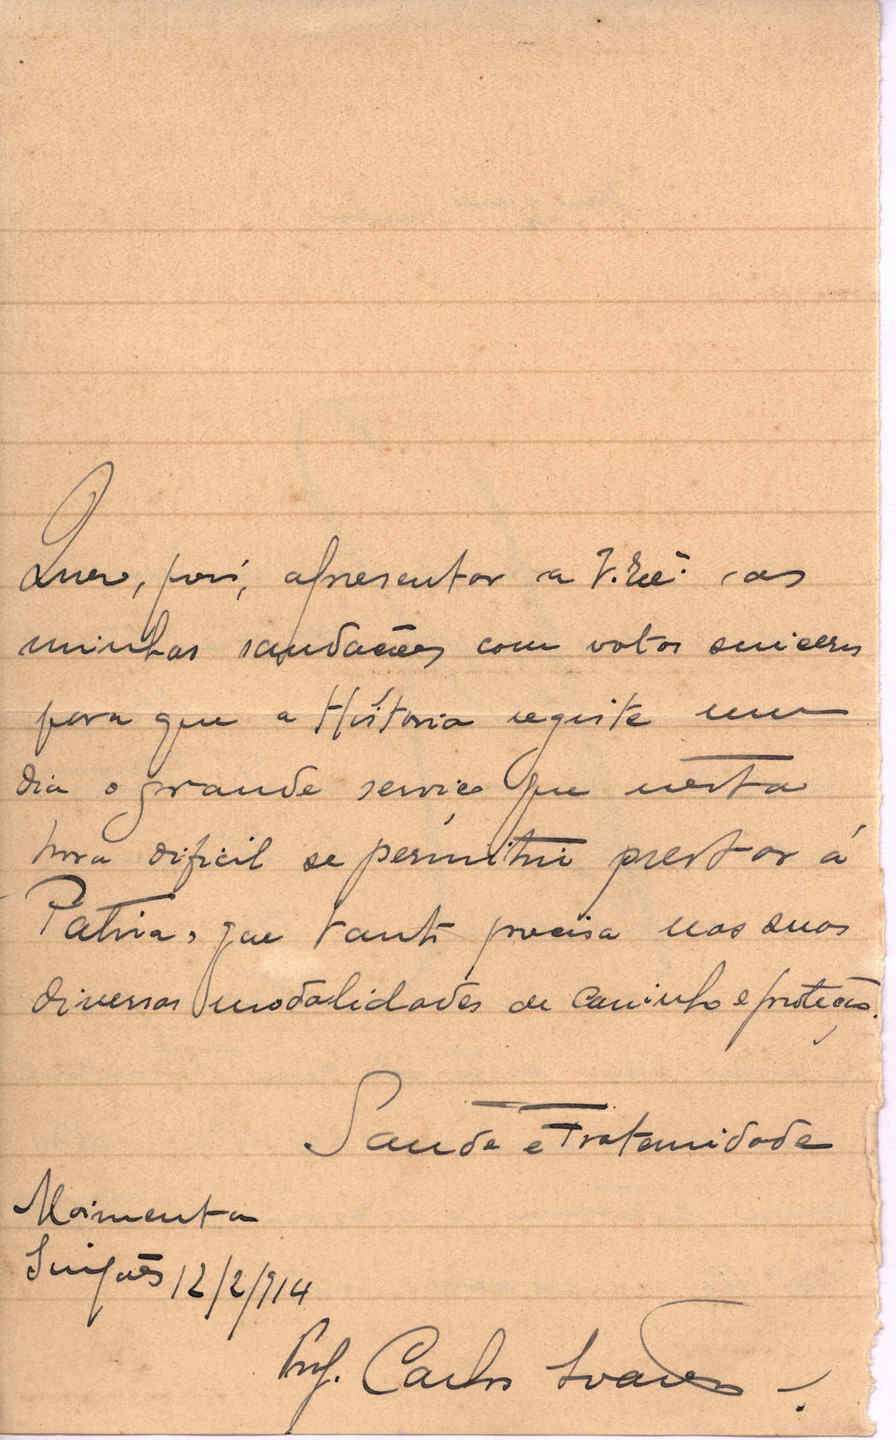 Quero, pois, apresentar a V. Exª. as
minhas saudações com votos sinceros
para que a Historia registe um
dia o grande serviço que nesta
hora dificil se permitiu prestar á
Patria, que tanto precisa nas suas
diversas modalidades de carinho e proteção.
Saude e Fraternidade
Moimenta
Sinfães 12/2/914
Prof. Carlos Soares